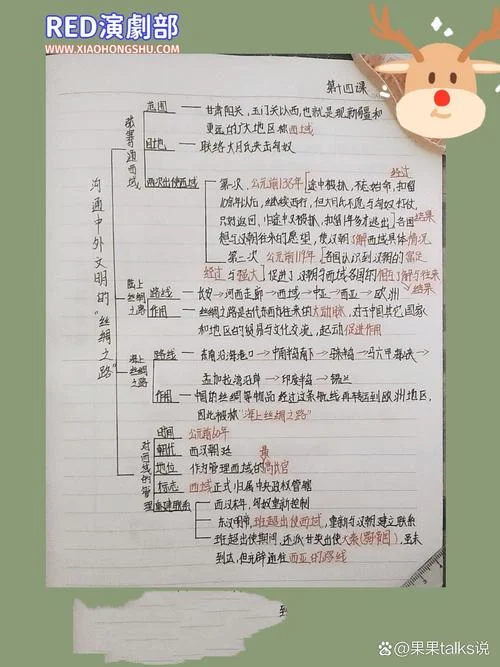 RED演劇部
WWW.XIAOHONGSHU.COM
第十四课
沟通中外文明的"丝绸之路"
张骞通西域
范围 — 甘肃阳关，玉门关以西，也就是现新疆和
更远的广大地区称西域
目地 — 联络大月氏夹击匈奴
两次出使西域
第一次，公元前138年[途中被抓，
经过
10余年以后，继续西行，但大月氏不愿与匈奴打仗，
只好返回，归途中又被抓，扣留1年多才逃出]各国
结果
想与汉朝往来的愿望，使汉朝了解西域具体情况
第二次 公元前119年[各国认识到汉朝的富足
经过 与强大]促进了汉朝与西域各国的相互了解与往来
结果
陆上丝绸之路
路线 — 长安→河西走廊→西域→中亚→西亚→欧洲
作用 — 丝绸之路是古代东西方往来的大动脉，对于中国其它国家
和地区的贸易与文化交流，起动促进作用
海上丝绸之路
路线 — 东南沿海港口→中南半岛南下→马来半岛→马六甲海峡→
孟加拉湾沿岸→印度半岛→锡兰
作用 — 中国的丝绸等物品经过这条航线再转运到欧洲地区，
因此被称"海上丝绸之路"
对西域的管理
时间 — 公元前60年
朝代 — 西汉朝廷
地位 — 作为管理西域的最高长官
标志 — 西域正式归属中央政权管辖
重建联系
西汉末年，匈奴重新控制
东汉明帝，班超出使西域，重新与汉朝建立联系
班超出使期间，还派甘英出使大秦(罗马帝国)，虽未
到达，但开辟通往西亚的路线
头条 @果果talks说